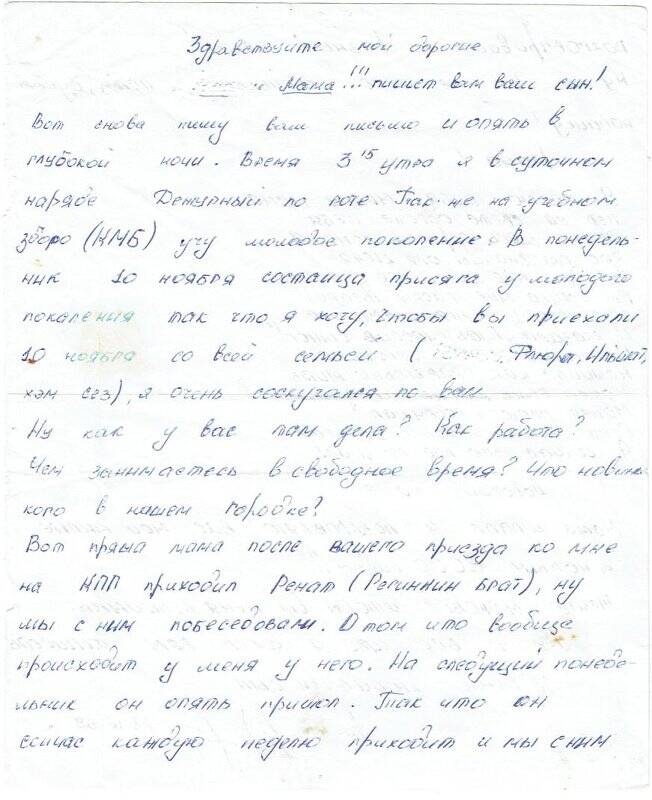 Здравствуйте мои дорогие
Мама!!! пишет вам ваш сын!
Вот снова пишу вам письмо и опять в
глубокой ночи. Время 3 15 утра я в суточном
наряде Дежурный по роте Так-же на учебном
зборо (КМБ) учу молодое поколение. В понедель-
ник 10 ноября состаица присяга у молодого
покаления так что я хочу, чтобы вы приехали
10 ноября со всей семьей ( Флюра, Ильшат,
хэм сез), я очень соскучался по вам
Ну как у вас там дела? Как работа?
Чем занимаетесь в свободное время? Что новень
кого в нашем городке?
Вот пряма мама после вашего приезда ко мне
на КПП приходил Ренат (Регинин брат), ну
мы с ним побеседовали. О том что вообще
происходит у меня у него. На следущий понеде-
льник он опять пришол. Так что он
сейчас каждую неделю приходит и мы с ним